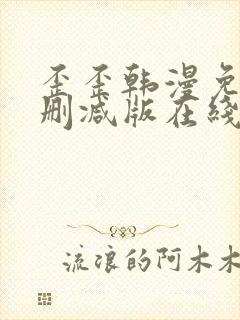 歪歪韩漫免
删减版在线
流浪的阿木木